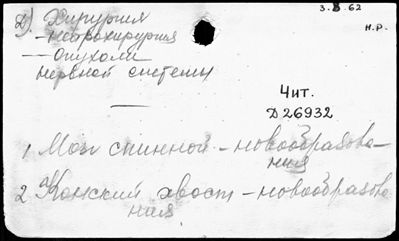 3.8.62
Д) Хирургия
н.р.
- нейрохирургия
- Опухоли
нервной системы
Чит.
Д 26932
1 Мозг спинной - новообразова-
ния
2 Конский хвост - новообразова
ния